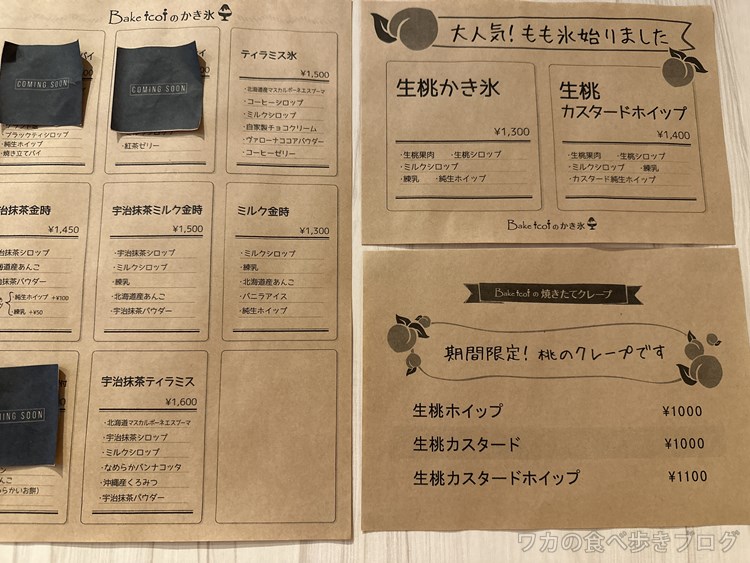 Bake icoiのかき氷
パイ
COMING SOON
・ブラックティシロップ
・純生ホイップ
・焼き立てパイ
COMING SOON
・紅茶ゼリー
ティラミス氷
¥1,500
・北海道産マスカルポーネエスプーマ
・コーヒーシロップ
・ミルクシロップ
・自家製チョコクリーム
・ヴァローナココアパウダー
・コーヒーゼリー
治抹茶金時
¥1,450
治抹茶シロップ
海道産あんこ
治抹茶パウダー
・純生ホイップ +¥100
・練乳 +¥50
宇治抹茶ミルク金時
¥1,500
・宇治抹茶シロップ
・ミルクシロップ
・練乳
・北海道産あんこ
・宇治抹茶パウダー
ミルク金時
¥1,300
・ミルクシロップ
・練乳
・北海道産あんこ
・バニラアイス
・純生ホイップ
MING SOON
んこ
らかいお餅）
宇治抹茶ティラミス
¥1,600
・北海道マスカルポーネエスプーマ
・宇治抹茶シロップ
・ミルクシロップ
・なめらかパンナコッタ
・沖縄産くろみつ
・宇治抹茶パウダー
大人気！もも氷始りました
生桃かき氷
¥1,300
・生桃果肉 ・生桃シロップ
・ミルクシロップ
・練乳 ・純生ホイップ
生桃
カスタードホイップ
¥1,400
・生桃果肉 ・生桃シロップ
・ミルクシロップ ・練乳
・カスタード純生ホイップ
Bake icoiのかき氷
Bake icoiの焼きたてクレープ
期間限定！桃のクレープです
生桃ホイップ ¥1000
生桃カスタード ¥1000
生桃カスタードホイップ ¥1100
ワカの食べ歩きブログ